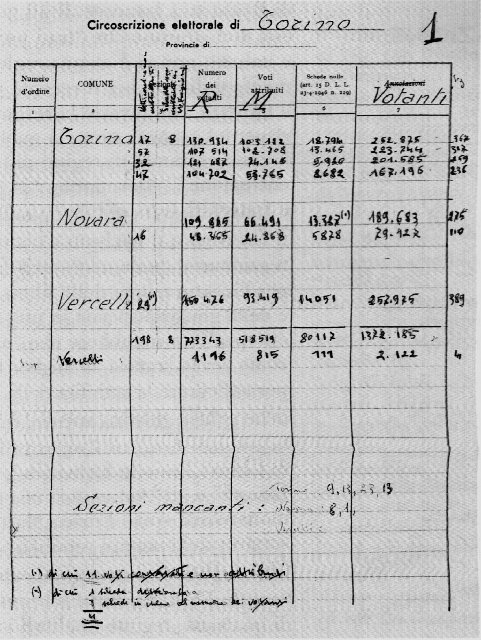 Circoscrizione elettorale di Torino
1
Provincie di
Numero d'ordine COMUNE Numero dei votanti R Voti attribuiti M Schede nulle (art. 15 D. L. L. 23-4-1946 n. 219) Annotazioni Votanti
1 2 6 7
Torino 17 8 130.934 103.182 18.794 252.875 367
52 107 514 102.708 13.465 223.744 347
32 121 487 74.146 5.920 201.585 259
47 104.702 53.765 8682 167.196 236
Novara 109.885 66.491 13.327(*) 189.683 275
16 48.365 24.868 5878 79.127 110
Vercelli 29(*) 150 476 93.419 14051 257.975 389
198 8 773343 518519 80117 1372.185
Vercelli 1196 815 111 2.122 4
Torino 9, 13, 23, 13
Sezioni mancanti : Novara 8, 1,
Vercelli
(*) di cui 11 voti contestati e non attribuiti
(*) di cui 1 scheda
3 schede in meno al numero dei votanti
4